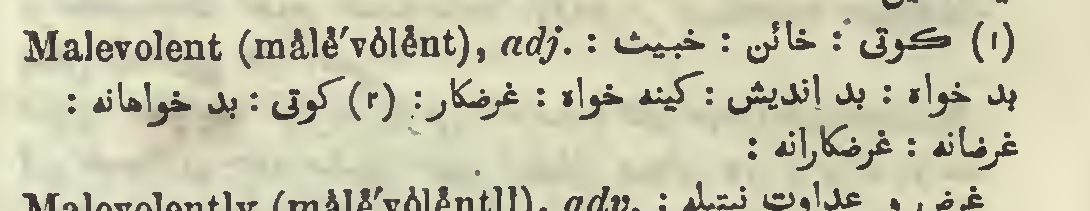 Malevolent (mâlĕ′vŏlĕnt), adj. : (١) كوتی : خائن : خبیث :
بد خواه : بد اندیش : كینه خواه : غرضكار : (٢) كوتی : بد خواهانه :
غرضانه : غرضكارانه :
Malevolently (mâlĕ′vŏlĕntlĭ), adv. : غرض و عداوت نیتیله